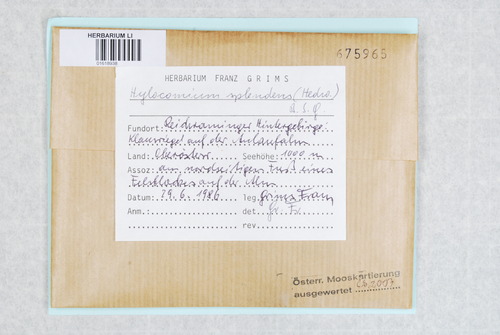 HERBARIUM LI
675965
HERBARIUM FRANZ GRIMS
Hylocomium splendens (Hedw.)
B.S.G.
Fundort: Reichraminger Hintergebirge
auf der Anlaufalm
Land: Oberösterr. Seehöhe: 1000 m
Assoz: am nordseitigen Fuß eines
Felsblockes auf der Alm
Datum: 19.6.1986 leg. Grims Franz
Anm. det. Gr. Fr.
rev.
Österr. Mooskartierung
ausgewertet 2017